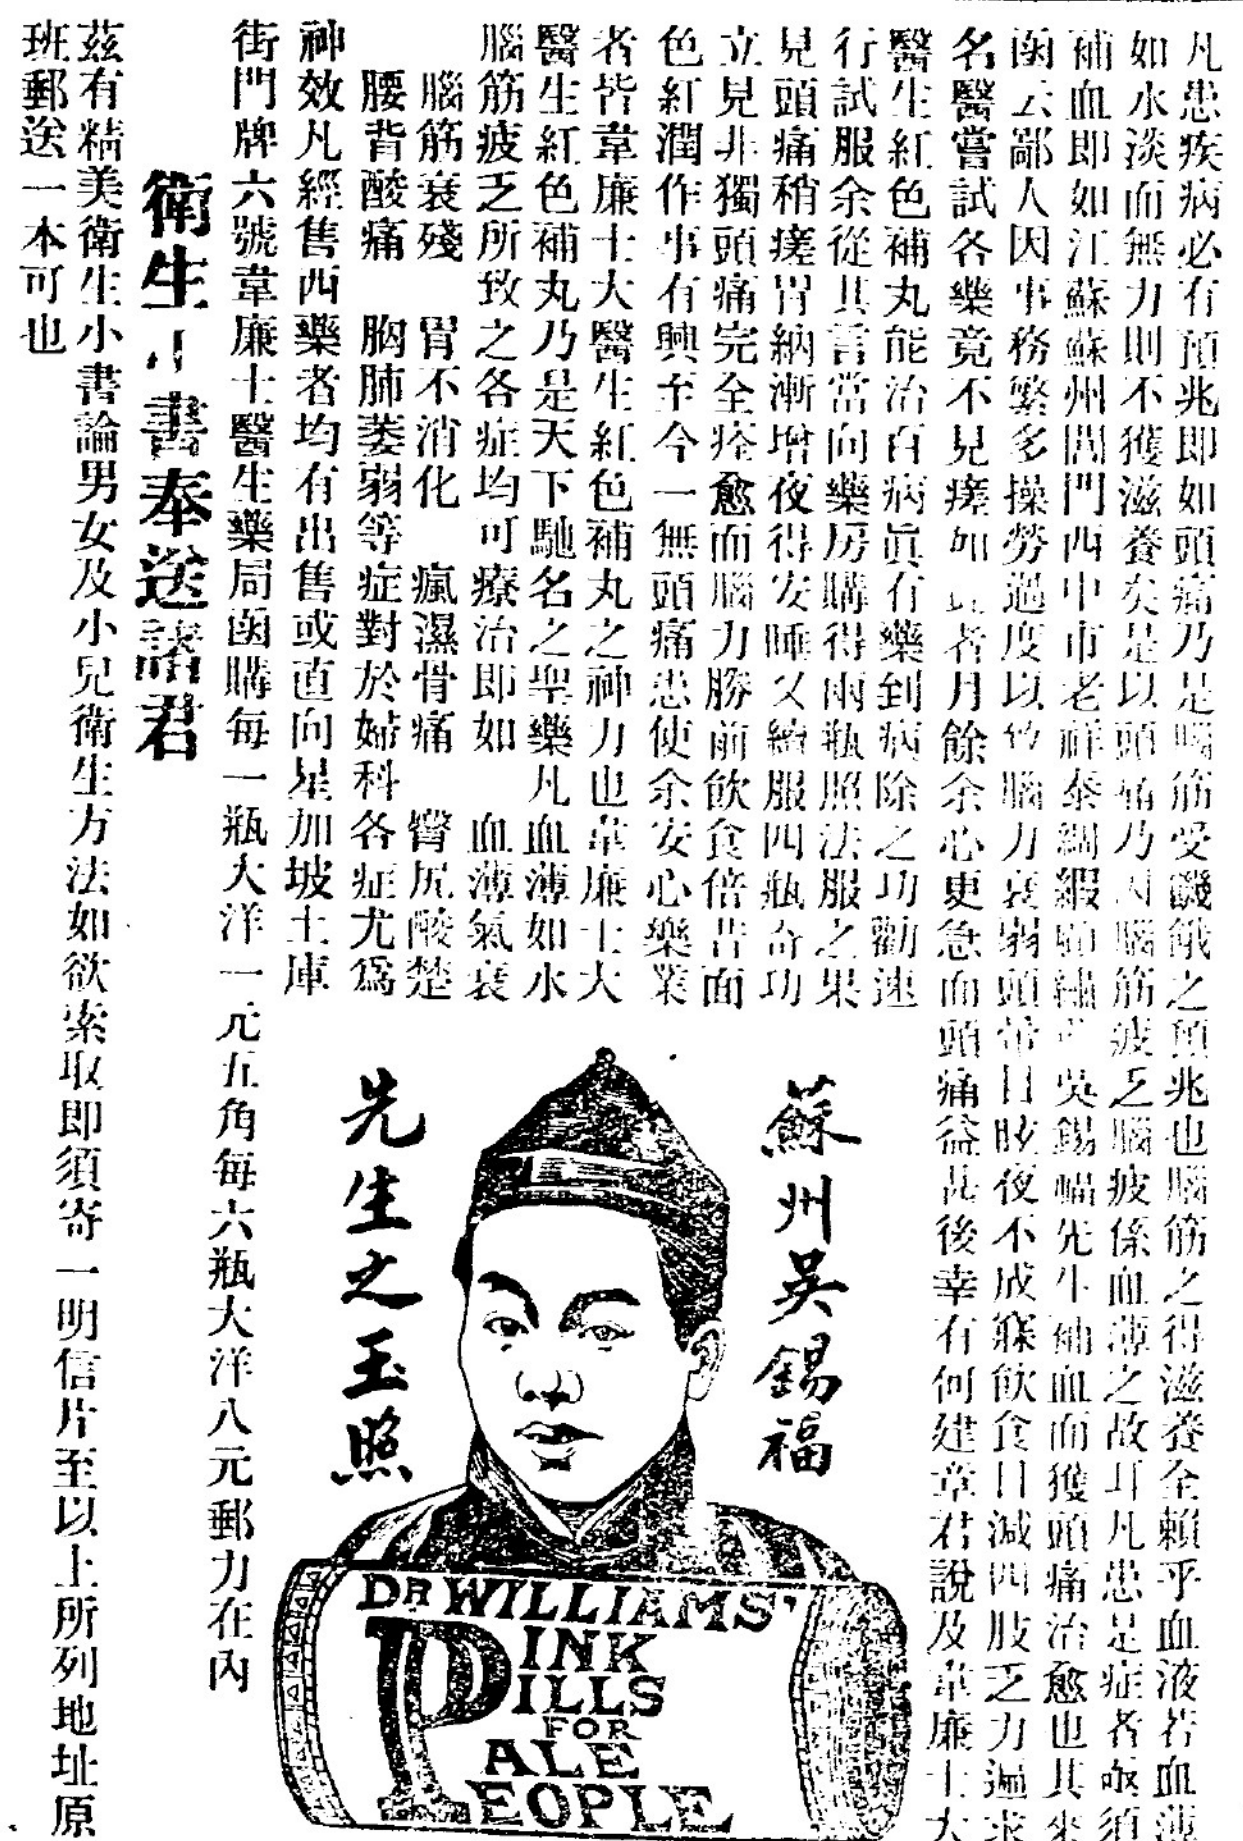 凡患疾病必有預兆即如頭痛乃是腦筋受饑餓之預兆也腦筋之得滋養全賴乎血液若血薄
如水淡而無力則不獲滋養矣是以頭痛乃因腦筋疲乏腦疲係血薄之故耳凡患是症者亟須
補血即如江蘇蘇州閶門西中市老祥泰綢緞顧繡莊吳錫福先生補血而獲頭痛治愈也其來
函云鄙人因事務繁多操勞過度以致腦力衰弱頭暈目眩夜不成寐飲食日減四肢乏力遍求
名醫嘗試各藥竟不見瘥如是者月餘余心更急而頭痛益甚後幸有何建章君說及韋廉士大
醫生紅色補丸能治百病眞有藥到病除之功勸速
行試服余從其言當向藥房購得兩瓶照法服之果
見頭痛稍瘥胃納漸增夜得安睡又續服四瓶奇功
立見非獨頭痛完全痊愈而腦力勝前飲食倍昔面
色紅潤作事有興至今一無頭痛患使余安心樂業
者皆韋廉士大醫生紅色補丸之神力也韋廉士大
醫生紅色補丸乃是天下馳名之聖藥凡血薄如水
腦筋疲乏所致之各症均可療治即如 血薄氣衰
腦筋衰殘 胃不消化 瘋濕骨痛 臀尻酸楚
腰背酸痛 胸肺萎弱等症對於婦科各症尤爲
神效凡經售西藥者均有出售或直向星加坡土庫
街門牌六號韋廉士醫生藥局函購每一瓶大洋一元五角每六瓶大洋八元郵力在內
衛生小書奉送諸君
茲有精美衛生小書論男女及小兒衛生方法如欲索取即須寄一明信片至以上所列地址原
班郵送一本可也
蘇州吳錫福
先生之玉照
DR WILLIAMS'
PINK
PILLS
FOR
PALE
PEOPLE